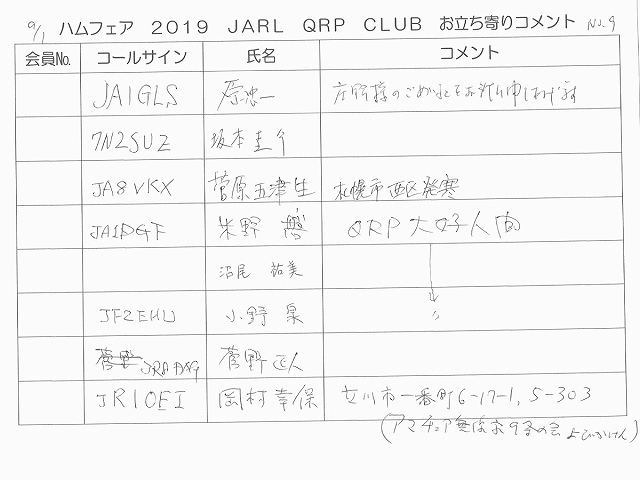 9/1 ハムフェア 2019 JARL QRP CLUB お立ち寄りコメント No.9
会員No. コールサイン 氏名 コメント
JA1GLS 原 忠一
7N2SUZ 坂本圭介
JA8VKX 菅原五津生 札幌市西区発寒
JA1DGF 米野 QRP大好人間
沼尾 祐美
JF2EHU 小野 泉 〃
菅野 菅野正人
JR1OEI 岡村幸保 立川市一番町6-17-1, 5-303
(アマチュア無線 9条の会 よびかけ人)